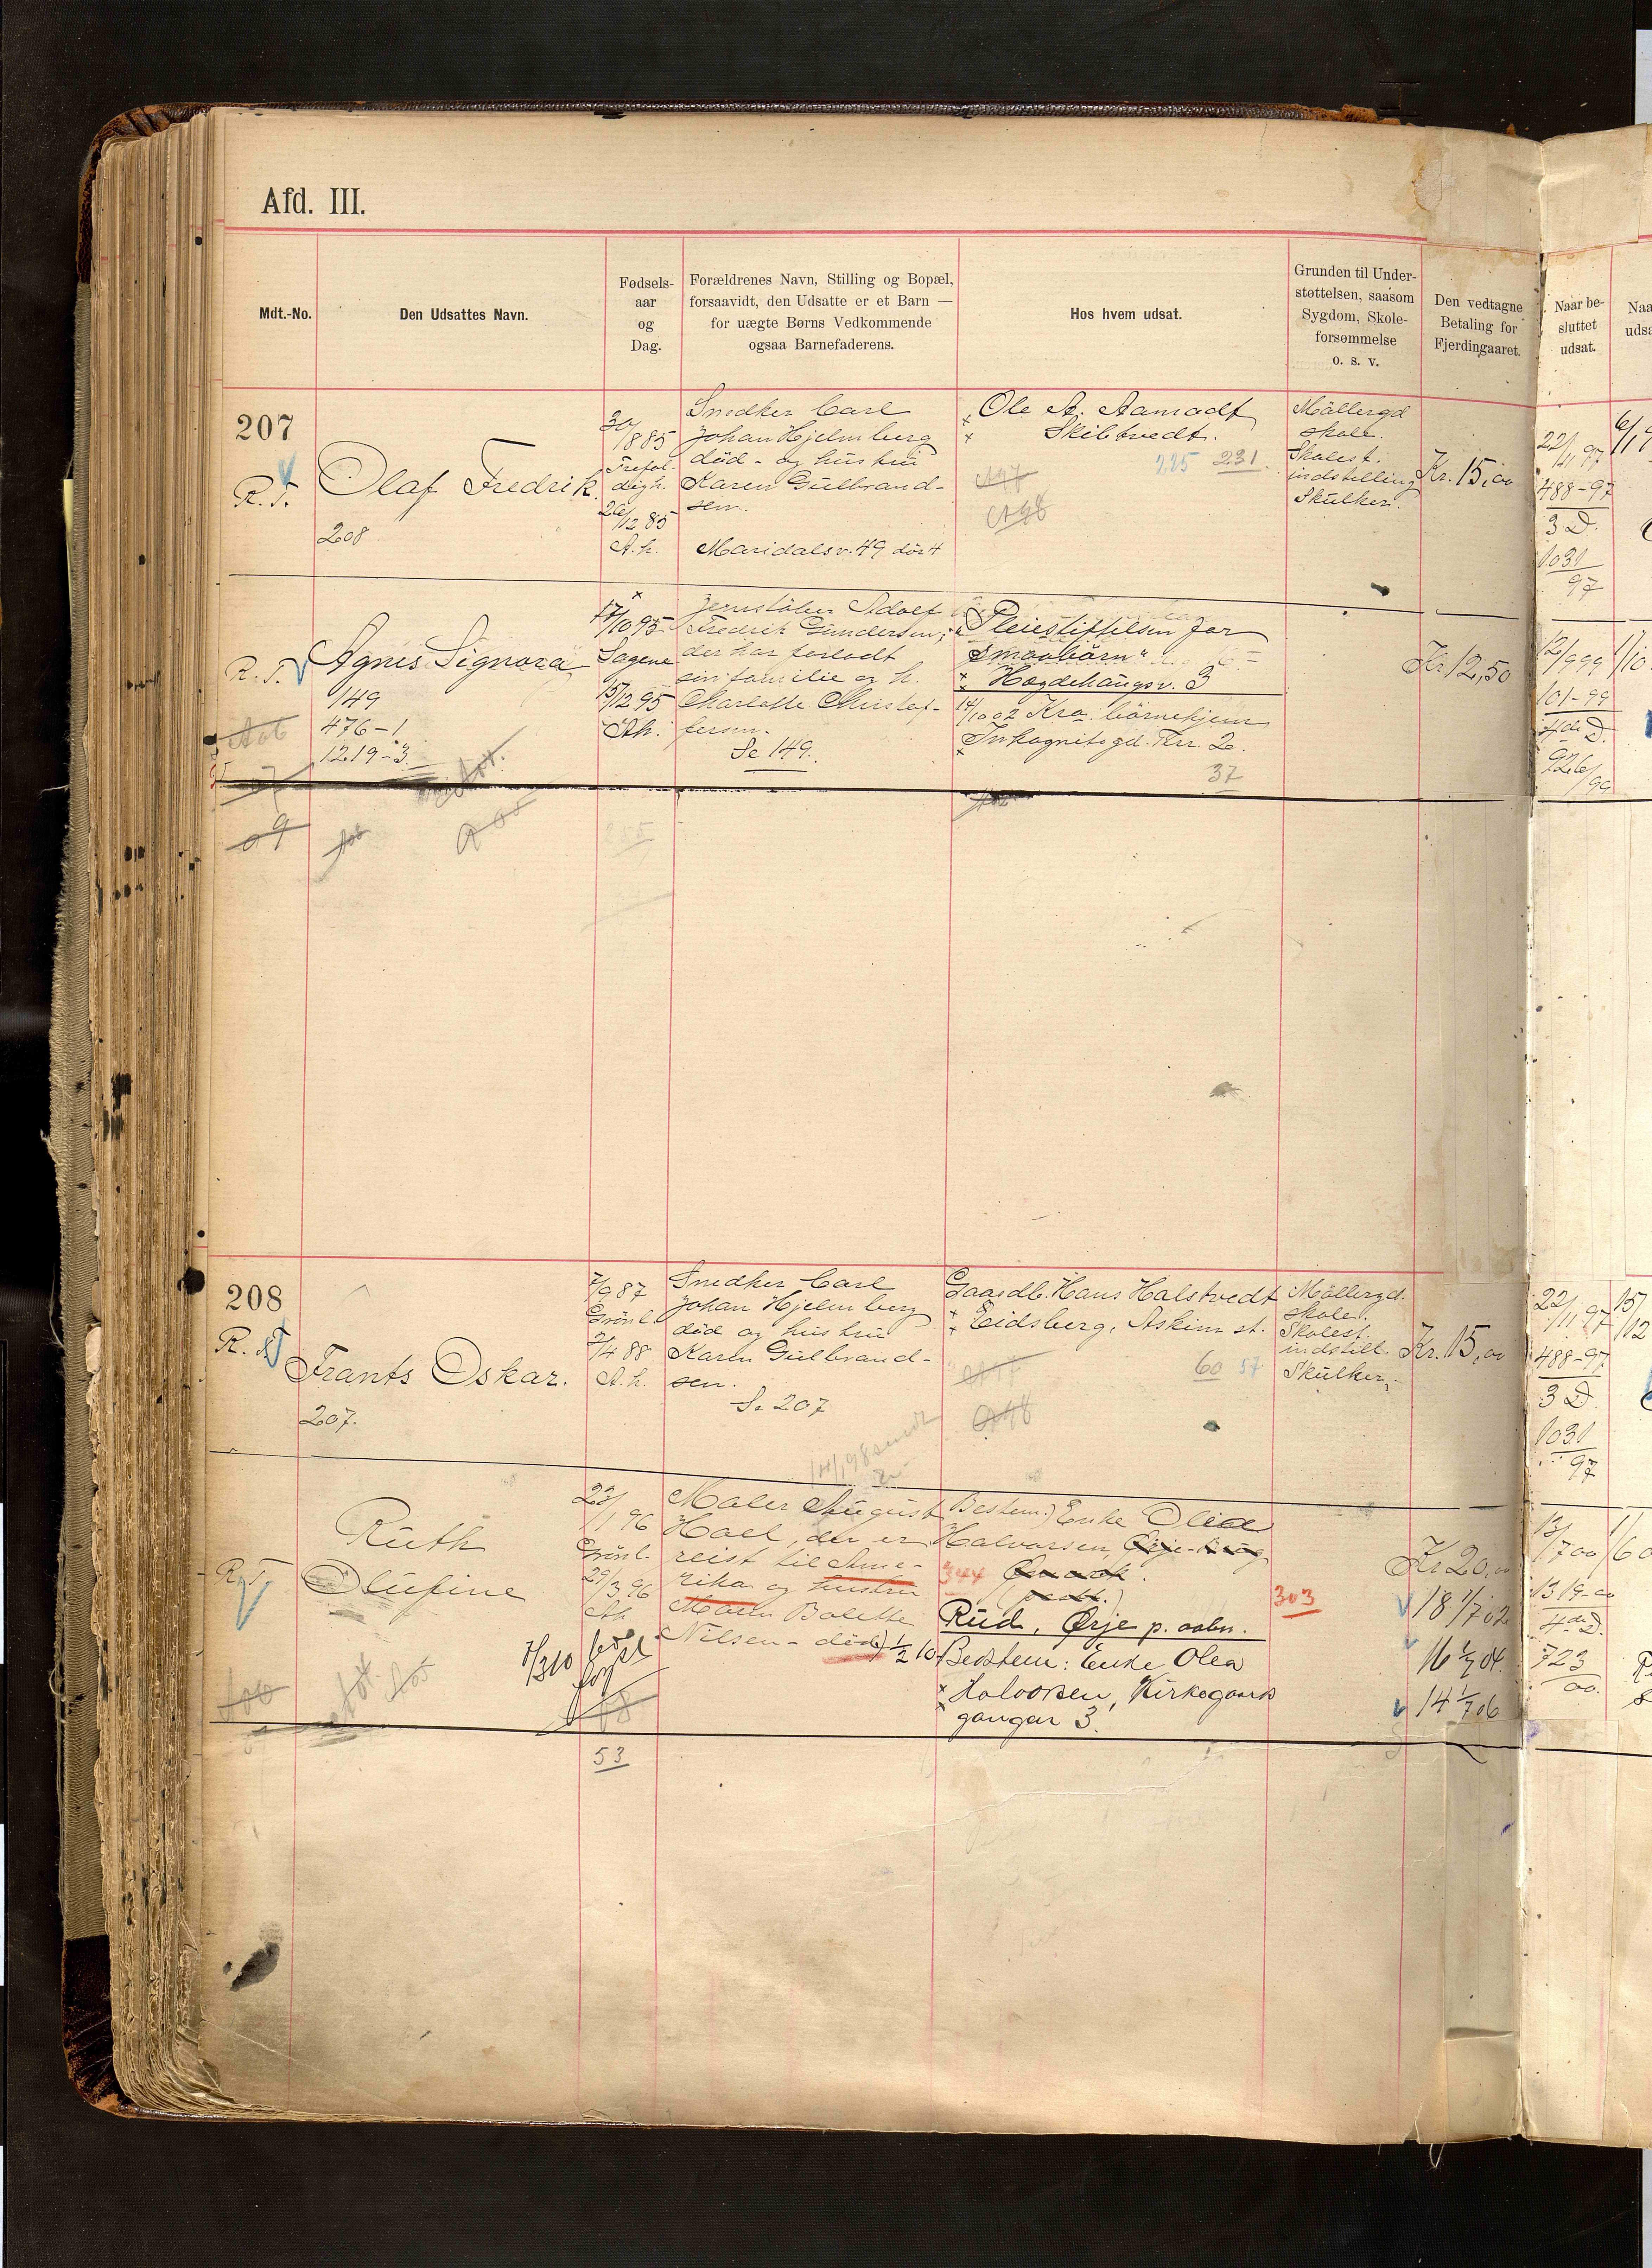 Afd. III.
Mdt.-No.
Den Udsattes Navn.
Fødsels-
aar
og
Dag.
Forældrenes Navn, Stilling og Bopæl,
forsaavidt, den Udsatte er et Barn —
for uægte Børns Vedkommende
ogsaa Barnefaderens.
Hos hvem udsat.
Grunden til Under-
støttelsen, saasom
Sygdom, Skole-
forsømmelse
o. s. v.
Den vedtagne
Betaling for
Fjerdingaaret.
Naar be-
sluttet
udsat.
Naa
udsa
207
R. T.
Olaf Fredrik.
208
30/8 85
Trefol-
digh.
26/12 85
A. h.
Snedker Carl
Johan Hjelmberg
död - og hustru
Karen Gulbrand-
sen.
Maridalsv. 49 dör 4
Ole A. Aamodt
Skibtvedt.
225 231
A97
A98
Möllergd
skole.
Skolest.
indstilling
Skulker.
Kr. 15,00
22/11 97
488-97
3 D.
1031
97
R. T.
Agnes Signora
149
476-1
1219-3
17/10 95
Sagene
15/12 95
Ah.
Jernstöber Adolf
Fredrik Gundersen,
der har forladt
sin familie og h.
Charlotte Christof-
fersen.
Se 149.
Pleiestiftelsen for
smaabörn"
Hægdehaugsv. 3
14/10 02 Kra. börnehjem
Inkognitogd. Trr. 2.
37
Kr 12,50
12/9 99
101-99
4de D.
926/99
09
208
R. T.
Frants Oskar.
207.
7/9 87
Grönl.
2/4 88
A. h.
Snedker Carl
Johan Hjelmberg
död og hustru
Karen Gulbrand-
sen.
Se 207
Gaardb. Hans Halstvedt
Eidsberg, Askim st.
60 57
A97
A98
Möllergd.
skole.
Skolest.
indstill.
Skulker.
Kr. 15,00
22/11 97
488-97
3 D.
1031
97
15/12
R. T.
Ruth
Olufine
23/1 96
Grönl.
29/3 96
Ah
Maler August
Hael, der er
reist til Ame-
rika og hustru
Maren Bolette
Nilsen - död
Bestem.) Enke Olea
Halvorsen,
344
Rud, Ørje p. aabn.
1/2 10 Bestem: Enke Olea
Halvorsen, Kirkegaards
gangen 3.
303
Kr 20,00
18 1/7 02
16 1/7 04.
14 1/7 06
13/7 00
1319-00
4de D.
723
00.
53